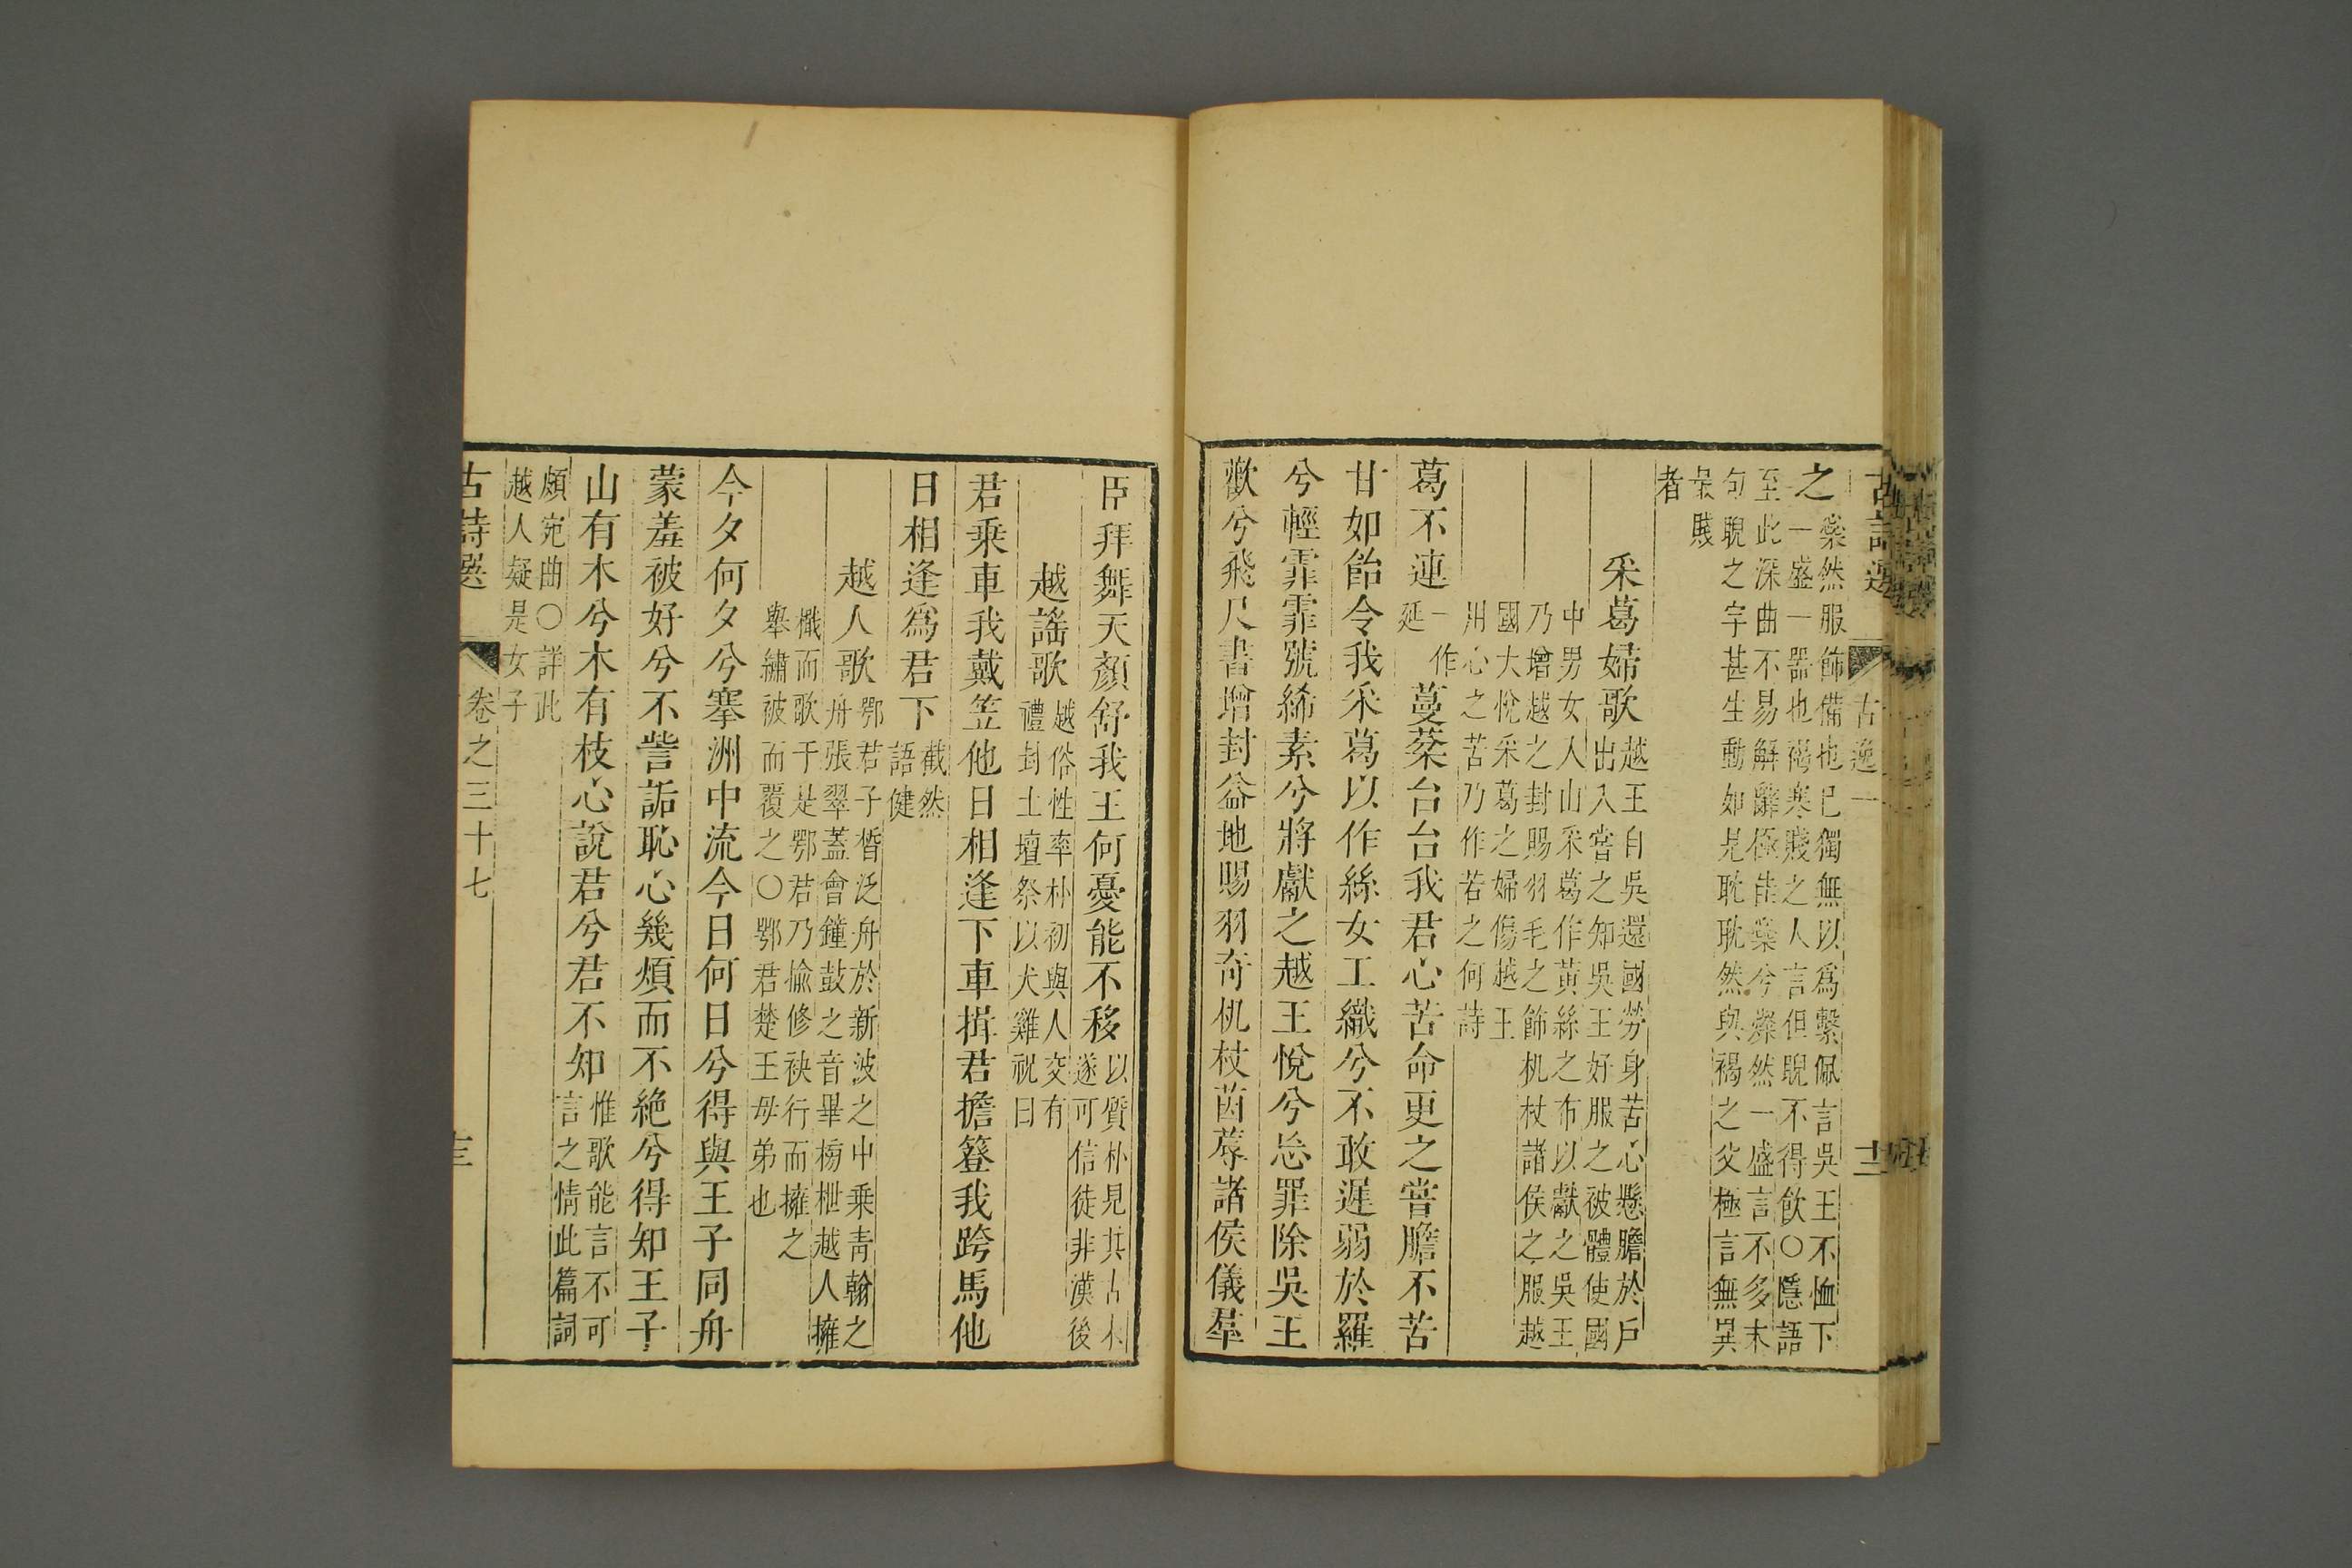 古詩選 古逸一 十二
之 橤然服飾備也已獨無以爲繫佩言吳王不恤下
一盛一器也褐寒賤之人言但睨不得飲○隱語
至此深曲不易解辭極佳橤兮橤然一盛言不多末
句睨之字甚生動如見耽耽然與褐之父極言無異
最賤
者
采葛婦歌 越王自吳還國勞身苦心懸膽於戶
出入嘗之知吳王好服之被體使國
中男女入山采葛作黃絲之布以獻之吳王
乃增越之封賜羽毛之飾机杖諸侯之服越
國大悅采葛之婦傷越王
用心之苦乃作若之何詩
葛不連 一作延 蔓棻台台我君心苦命更之嘗膽不苦
甘如飴令我采葛以作絲女工織兮不敢遲弱於羅
兮輕霏霏號絺素兮將獻之越王悅兮忘罪除吳王
歡兮飛尺書增封益地賜羽奇机杖茵蓐諸侯儀羣
臣拜舞天顏舒我王何憂能不移 以質朴見其古木
遂可信徒非漢後
越謠歌 越俗性率朴初與人交有
禮封土壇祭以犬雞祝曰
君乘車我戴笠他日相逢下車揖君擔簦我跨馬他
日相逢爲君下 截然
語健
越人歌 鄂君子晳泛舟於新波之中乘靑翰之
舟張翠蓋會鐘鼓之音畢榜枻越人擁
檝而歌于是鄂君乃揄修袂行而擁之
舉繡被而覆之○鄂君楚王母弟也
今夕何夕兮搴洲中流今日何日兮得與王子同舟
蒙羞被好兮不訾詬恥心幾煩而不絶兮得知王子
山有木兮木有枝心說君兮君不知 惟歌能言不可
言之情此篇詞
頗宛曲○詳此
越人疑是女子
古詩選 卷之三十七 十三